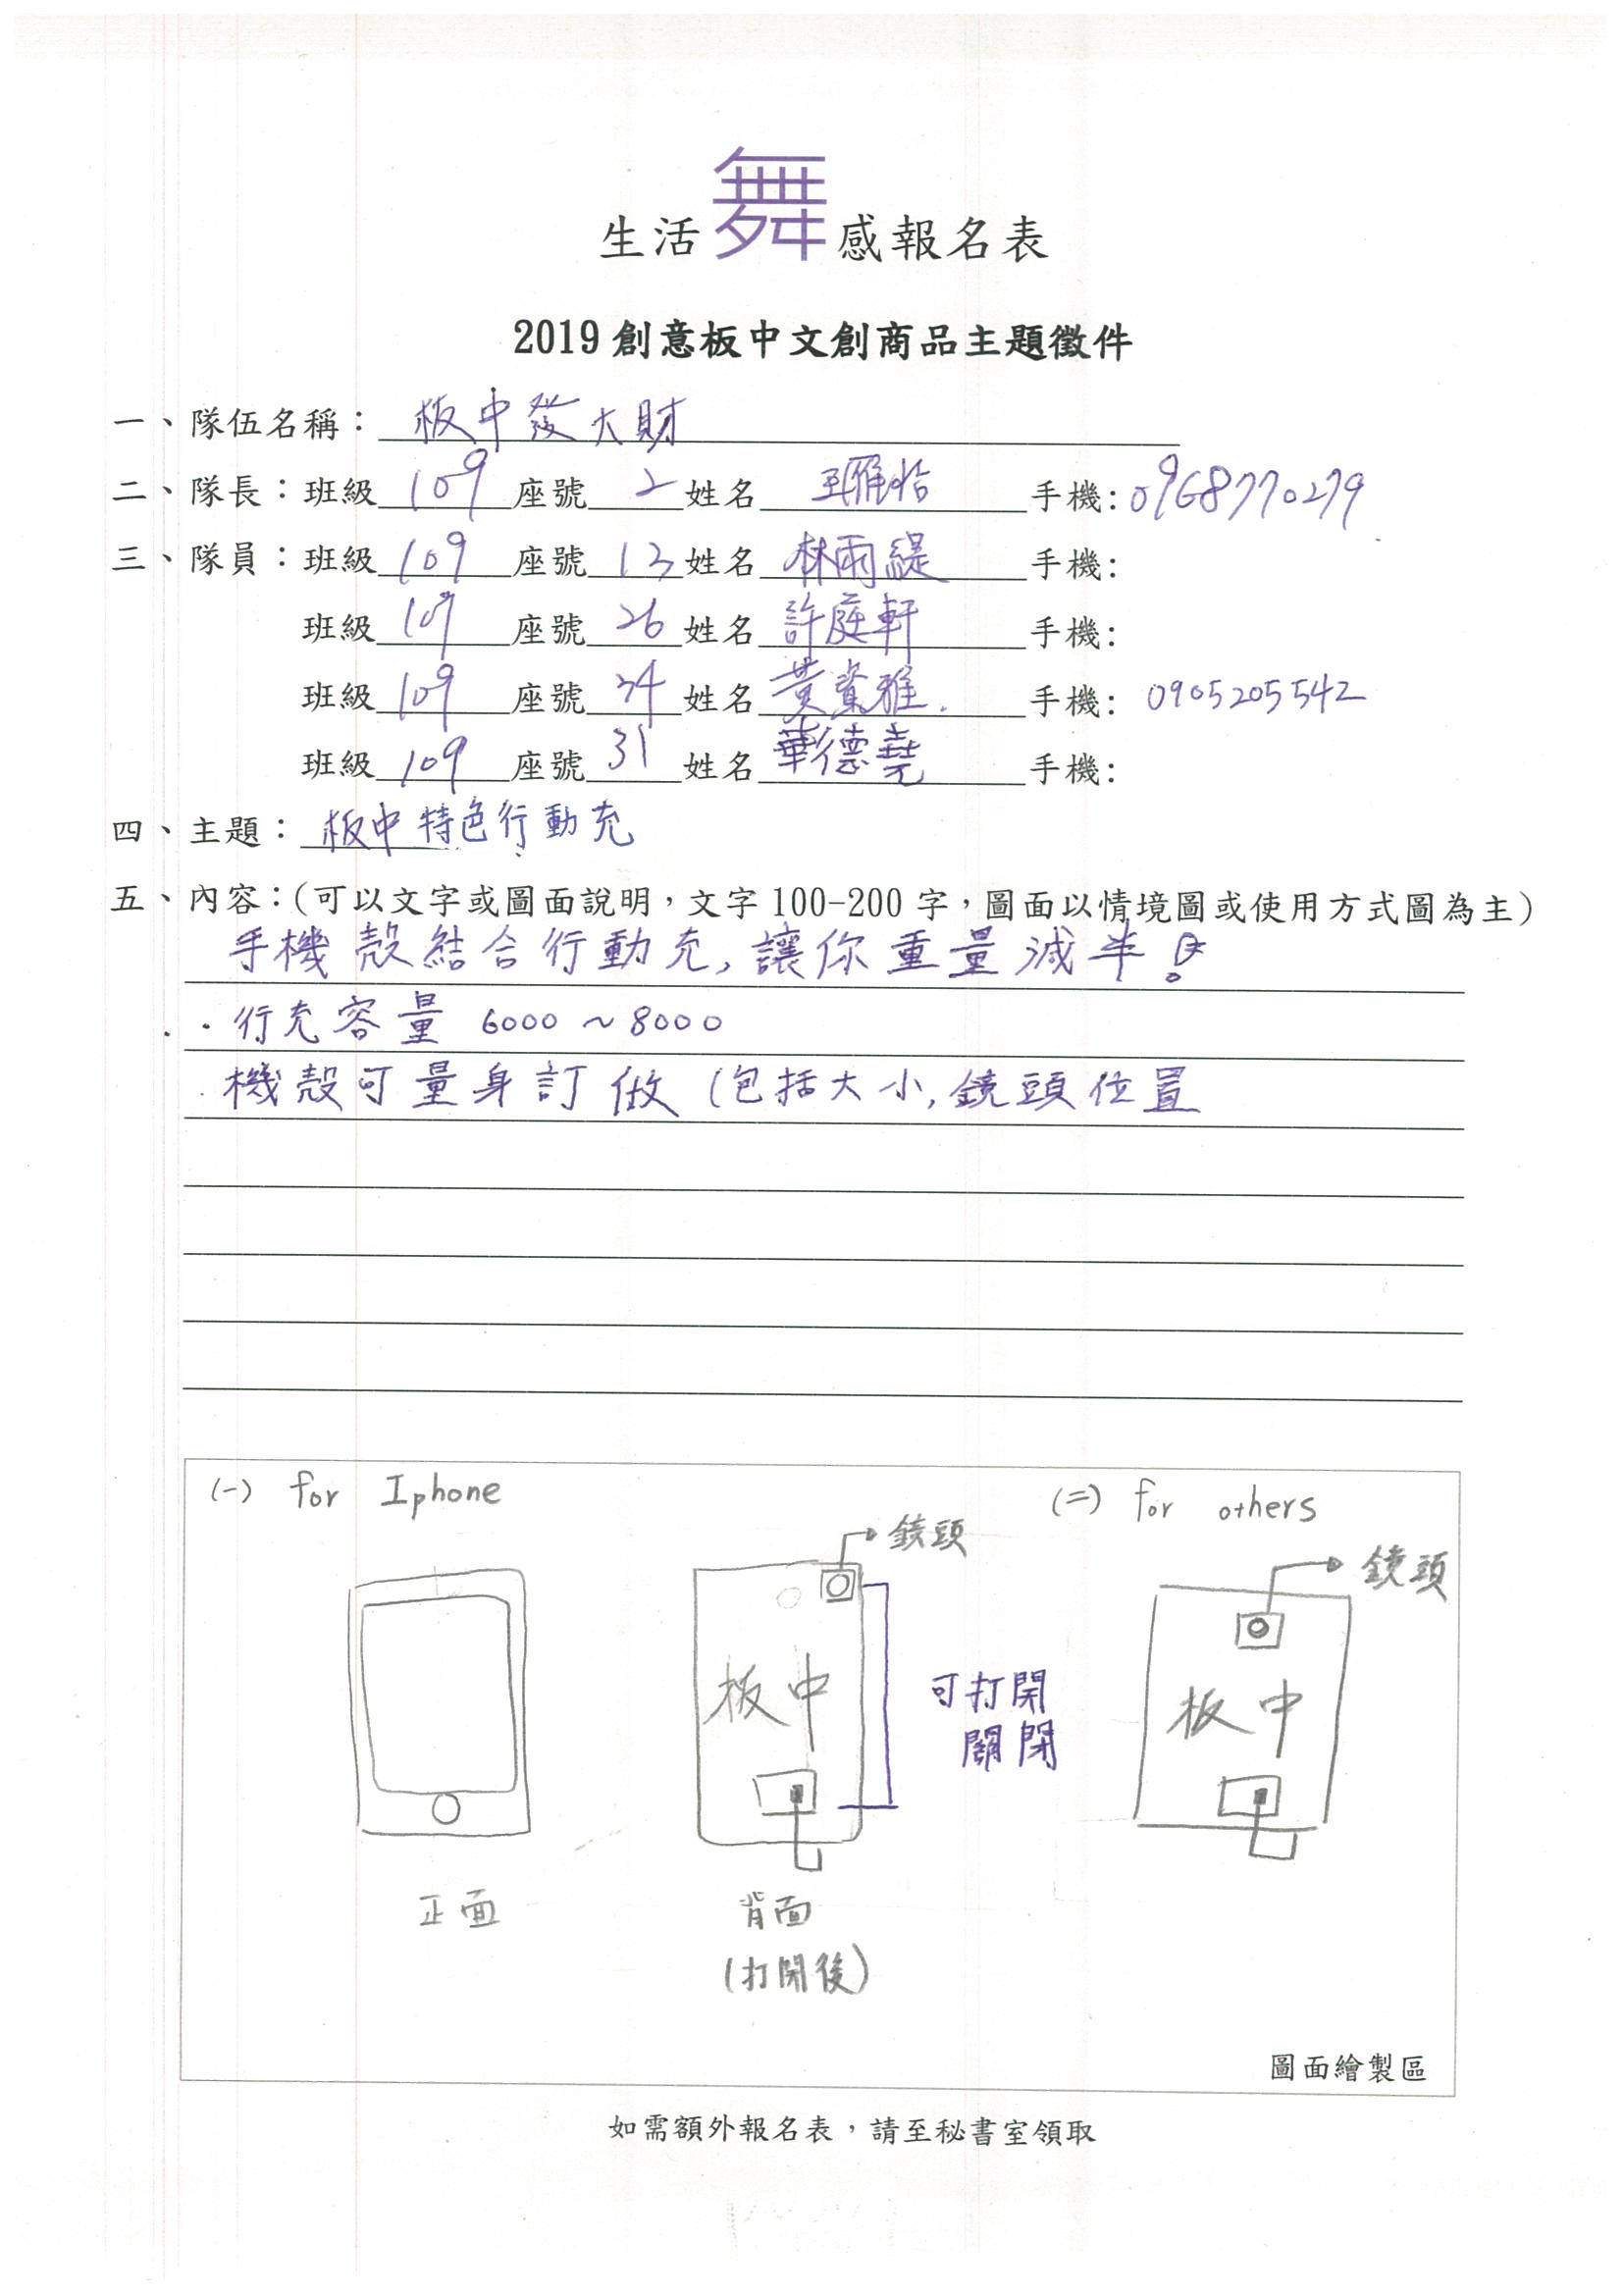 生活舞感報名表
2019創意板中文創商品主題徵件
一、隊伍名稱：板中發大財
二、隊長：班級109座號2姓名王雅怡手機:0968770279
三、隊員：班級109座號13姓名林雨緹手機:
班級109座號26姓名許庭軒手機:
班級109座號34姓名黃資雅.手機: 0905205542
班級109座號31姓名 德堯手機:
四、主題：板中特色行動充
五、內容：(可以文字或圖面說明，文字100-200字，圖面以情境圖或使用方式圖為主)
手機殼結合行動充,讓你重量減半!
·行充容量 6000~8000
·機殼可量身訂做(包括大小,鏡頭位置
(一) for Iphone
(二) for others
鏡頭
鏡頭
板中
可打開
關閉
板中
正面
背面
(打開後)
圖面繪製區
如需額外報名表，請至秘書室領取